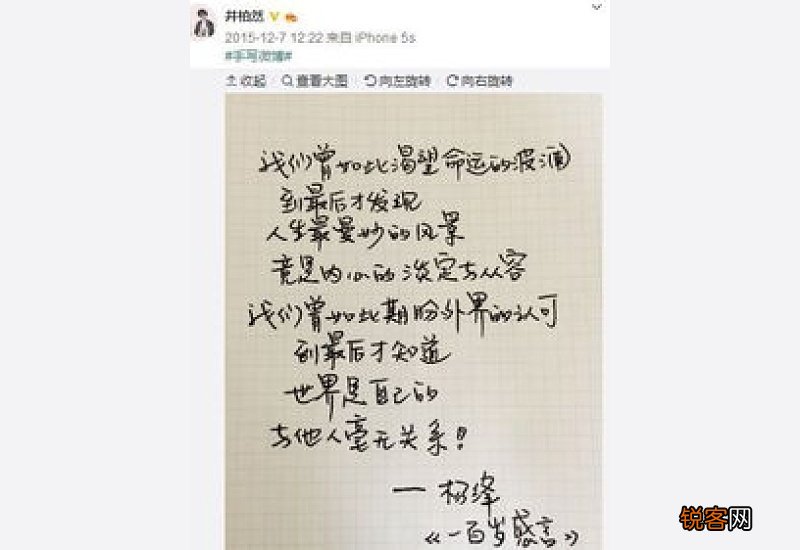 井柏然
2015-12-7 12:22 来自 iPhone 5s
#手写微博#
收起 查看大图 向左旋转 向右旋转
我们曾如此渴望命运的波澜
到最后才发现
人生最曼妙的风景
竟是内心的淡定与从容
我们曾如此期盼外界的认可
到最后才知道
世界是自己的
与他人毫无关系！
— 杨绛
《一百岁感言》
锐客网